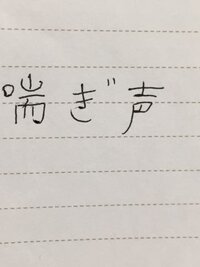 喘ぎ声